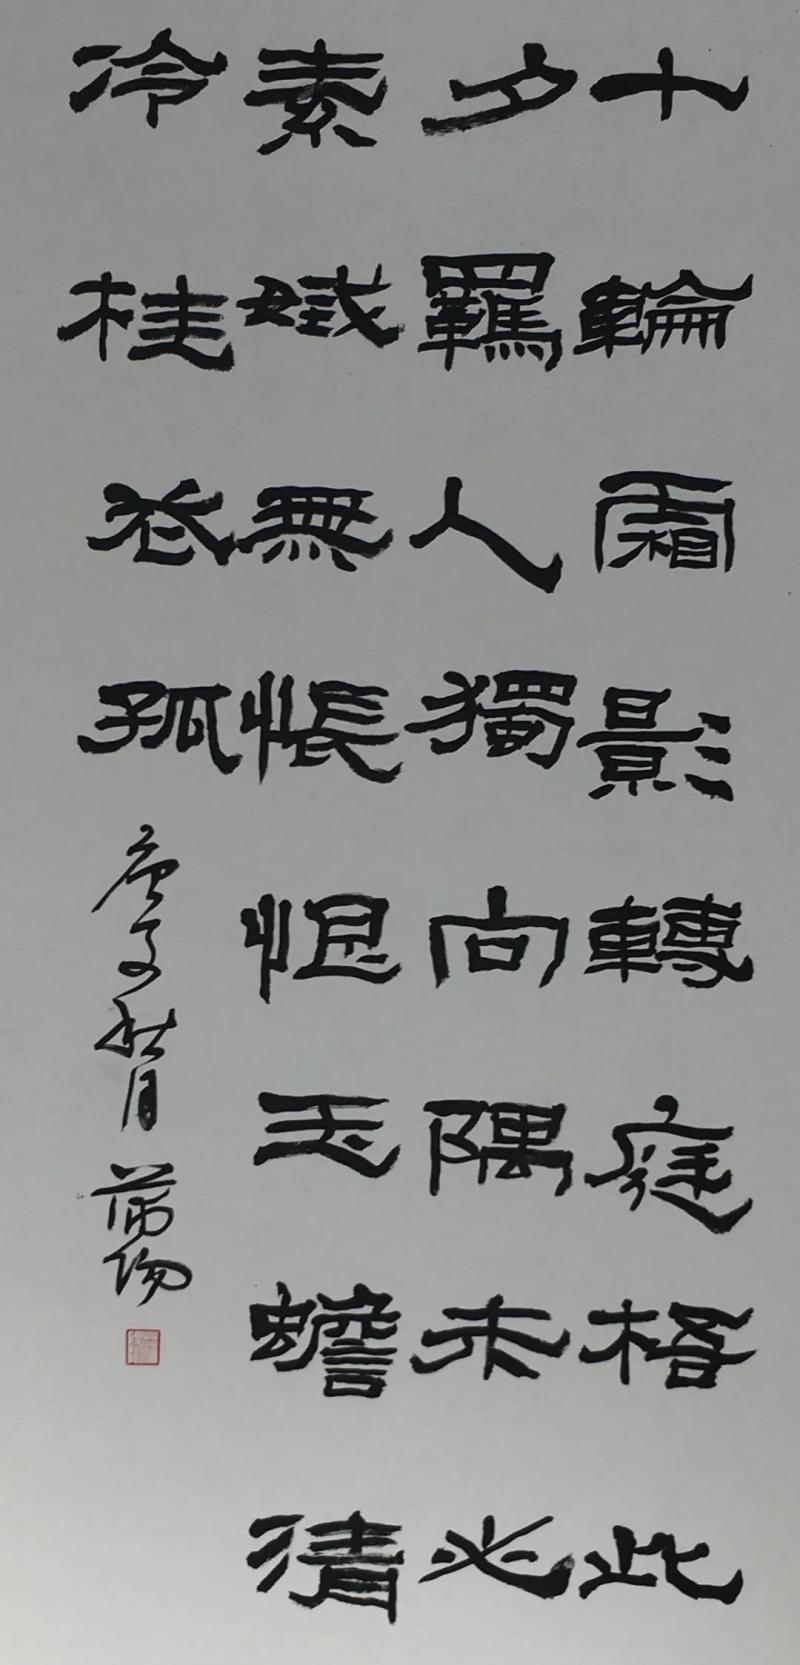 十輪霜影轉庭梧此
夕羈人獨向隅未必
素娥無悵恨玉蟾清
冷桂花孤
庚子秋月